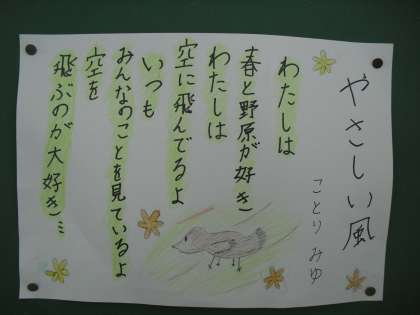 やさしい風
ことり みゆ
わたしは
春と野原が好き
わたしは
空に飛んでるよ
いつも
みんなのことを見ているよ
空を
飛ぶのが大好き…